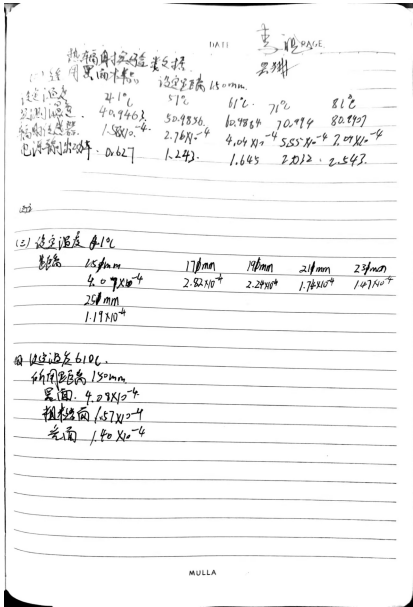 DATE PAGE
热辐射实验
(一)用黑面样品 设定距离150mm.
设定温度 41℃ 51℃ 61℃ 71℃ 81℃
实测温度 40.9463. 50.9856 60.9864 70.994 80.8907
辐射传感器 1.58×10⁻⁴ 2.76×10⁻⁴ 4.04×10⁻⁴ 5.55×10⁻⁴ 7.09×10⁻⁴
电源输出功率 0.627 1.243. 1.645 2.032 . 2.543.
(三) 设定温度 61℃
距离 150mm 170mm 190mm 210mm 230mm
4.09×10⁻⁴ 2.82×10⁻⁴ 2.24×10⁻⁴ 1.74×10⁻⁴ 1.47×10⁻⁴
250mm
1.19×10⁻⁴
四 设定温度61℃.
所用距离150mm
黑面. 4.08×10⁻⁴
粗糙面 1.57×10⁻⁴
光面 1.40×10⁻⁴
MULLA